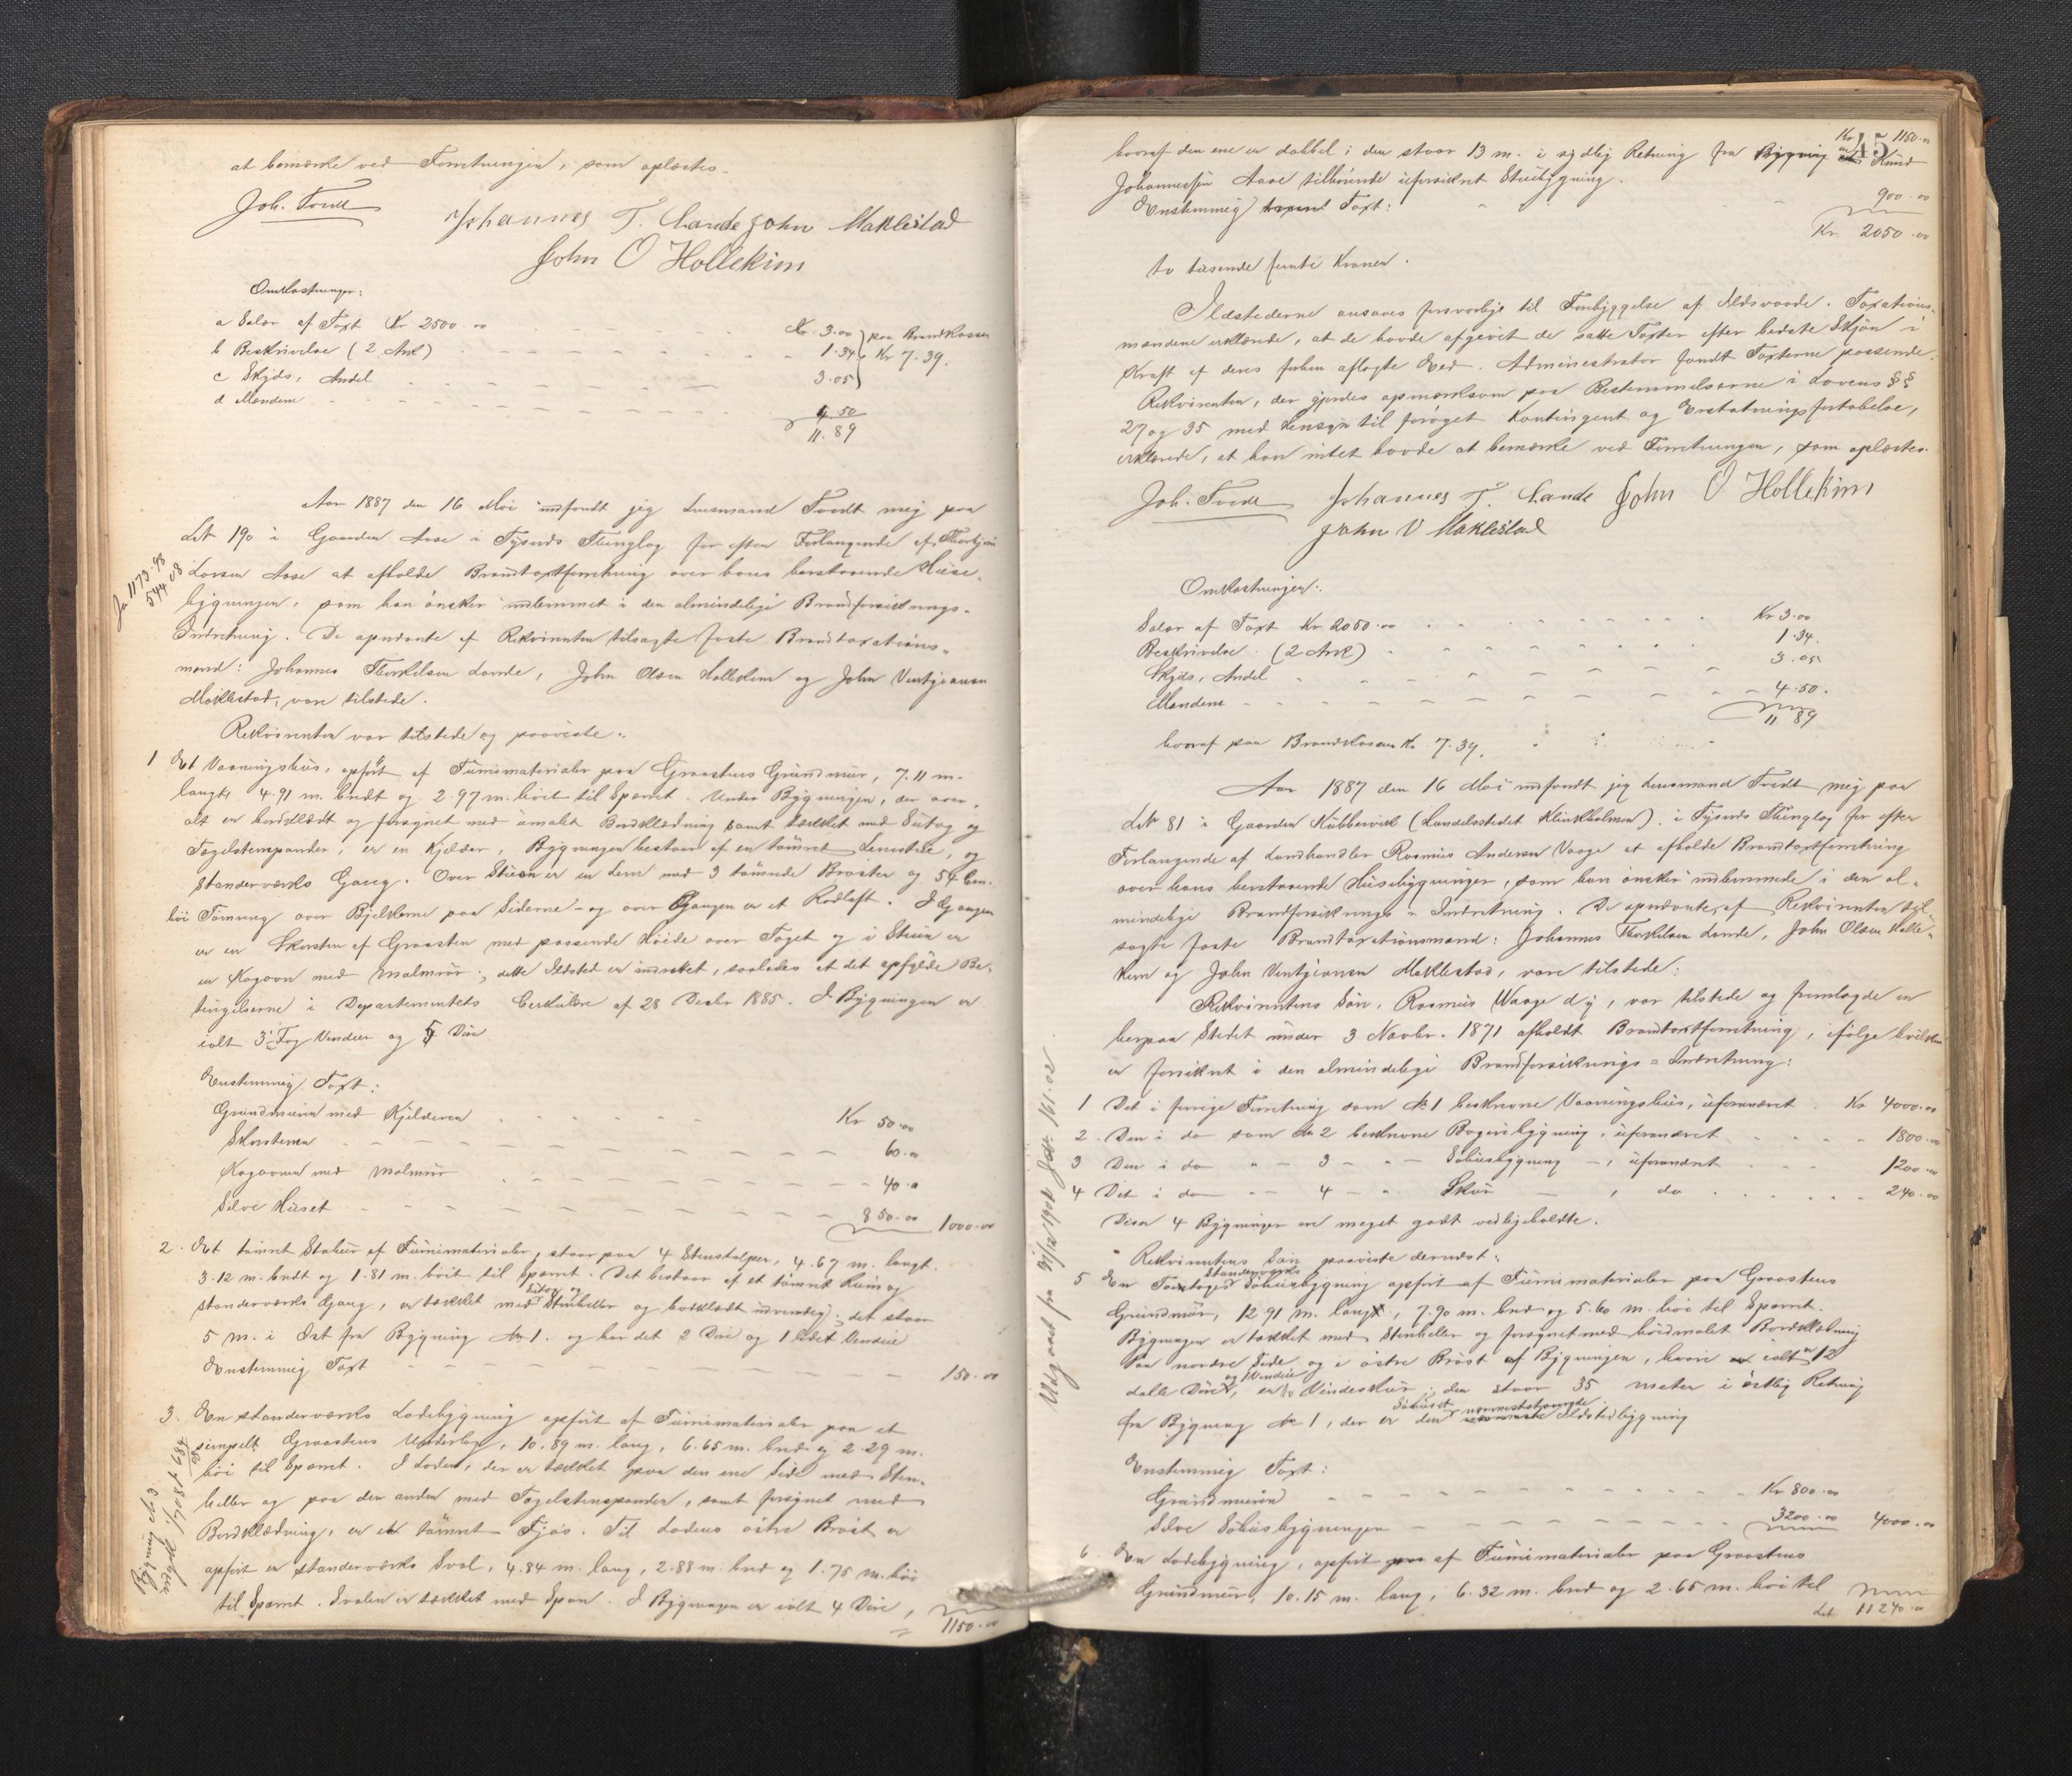 at bemærke ved Forretningen, som oplæstes.
Joh. Tvedt
Johannes T. Lande John Maklestad
John O Hollekim
Omkostninger:
a Salær af Taxt Kr 2500.00 Kr. 3.00 paa Brandkassen
b Beskrivelse (2 Ark) 1.34 Kr 7.39.
c Skyds, Andel 3.05
d Mændene 4.50
11.89
Aar 1887 den 16 Mai indfandt jeg Lensmand Tvedt mig paa
Lit 190 i Gaarden Aase i Tysnes Thinglag for efter Forlangende af
Larsen Aase at afholde Brandtaxtforretning over hans havende Huse-
bygninger, som han ønsker indlemmet i den almindelige Brandforsikrings-
Indretning. De opnævnte af Rekvirenten tilsagte faste Brandtaxations-
mænd: Johannes Thorkilsen Lande, John Olsen Hollekim og John
Maklestad, var tilstede.
Rekvirenten var tilstede og paaviste:
1 Et Vaaningshus, opført af Furumaterialer paa Graastens Grundmur, 7.11 m.
langt, 4.91 m. bredt og 2.97 m. høit til Sparret. Under Bygningen, der over-
alt er bordklædt og forsynet med umalet Bordklædning samt tækket med Sutag og
Tagstenspander, er en Kjælder, Bygningen bestaar af en tømret Lemstue, og
Standerværks Gang. Over Stuen er en Lem med 3 tømrede Brøster og 54 Cm.
høi Tømring over Bjelkerne paa Siderne - og over Gangen er et Rodloft. I Gangen
er en Skorsten af Graasten med passende Høide over Taget og i Stuen er
en Kogeovn med malmrør; dette Ildsted er indrettet, saaledes at det opfylder Be-
tingelserne i Departementets Cerkulære af 28 Decbr 1885. I Bygningen er
ialt 3 Fag Vinduer og 5 Døre
Enstemmig Taxt:
Grundmuren med Kjelderen Kr 50.00
Skorstenen 60.00
Kogeovnen med Malmrør 40.00
Selve Huset 850.00 1000.00
2. Et tømret Stabur af Furumaterialer, staar paa 4 Stenstolper, 4.67 m. langt.
3.12 m. bredt og 1.81 m. høit til Sparret. Det bestaar af et tømret Rum og
Sutag og
standerværks Gang, er tækket med Stenheller og bordklædt udvendig; det staar
5 m. i Øst fra Bygning No 1. og har det 2 Døre og 1 lidet Vindue
Enstemmig Taxt 150.00
3. En standerværks Ladebygning opført af Furumaterialer paa et
simpelt Graastens Underlag, 10.89 m. lang, 6.65 m. bred og 2.29 m.
høi til Sparret. I Laden, der er tækket paa den ene Side med Sten-
heller og paa den anden med Tagstenspander, samt forsynet med
Bordklædning, er et tømret Fjøs. Til Ladens østre Brøst er
opført en standerværks Sval, 4.84 m. lang, 2.88 m. bred og 1.75 m. høi
til Sparret. Svalen er tækket med Spon. I Bygningen er ialt 4 Døre,
1150.00
Bygning No 3
udgaat
45
Kr 1150.00
hvoraf den ene er dobbel; den staar 13 m. i sydlig Retning fra Bygning Knud
Johannessen Aase tilhørende uforsikret Stuebygning.
Enstemmig Taxt: 900.00
Kr. 2050.00
to tusende femti Kroner.
Ildstederne ansaaes forsvarlige til Forebyggelse af Ildsvaade. Taxations-
mændene erklærede, at de havde afgivet de satte Taxter efter bedste Skjøn i
Kraft af deres før aflagte Eed. Administrator fandt Taxterne passende.
Rekvirenten, der gjordes opmærksom paa Bestemmelserne i Lovens §§
27 og 35 med Hensyn til forøget Kontingent og Erstatningsfortabelse,
erklærede, at han intet havde at bemærke ved Forretningen, som oplæstes.
Joh. Tvedt Johannes T. Lande John O Hollekim
John V Maklestad
Omkostninger:
Salær af Taxt Kr 2050.00 Kr 3.00
Beskrivelse (2 Ark) 1.34.
Skyds, Andel 3.05
Mændene 4.50.
11 89
hvoraf paa Brandkassen Kr. 7.39.
Aar 1887 den 16 Mai indfandt jeg Lensmand Tvedt mig paa
Lit 81 i Gaarden Kubbervik (Landelsstedet Klinkholmen) i Tysnes Thinglag for efter
Forlangende af Landhandler Rasmus Andersen Vaage at afholde Brandtaxtforretning
over hans havende Husebygninger, som han ønsker indlemmede i den al-
mindelige Brandforsikrings-Indretning. De opnævnte, af Rekvirenten til-
sagte faste Brandtaxationsmænd: Johannes Thorkilsen Lande, John Olsen Holle-
kim og John Maklestad, vare tilstede:
Rekvirentens Søn, Rasmus Waage d y, var tilstede og fremlagde en
herpaa Stedet under 3 Novbr. 1871 afholdt Brandtaxtforretning, ifølge hvilken
er forsikret i den almindelige Brandforsikrings-Indretning:
1 Det i forrige Forretning som No 1 beskrevne Vaaningshus, uforandret Kr 4000.00
2. Den i do som No 2 beskrevne Bageribygning, uforandret 1800.00
3 Den i do " 3 " Søhusbygning, uforandret 1200.00
4 Det i do " 4 " Skur, do 240.00
Disse 4 Bygninger ere meget godt vedligeholdte.
Rekvirentens Søn paaviste dernæst:
Standerværks
5 En Toetages Søhusbygning opført af Furumaterialer paa Graastens
Grundmur, 12.91 m. lang, 7.90 m. bred og 5.60 m. høi til Sparret.
Bygningen er tækket med Stenheller og forsynet med hvidmalet Bordklædning
paa nordre Side og i østre Brøst af Bygningen, hvori er ialt 12
og Vinduer
dalle Døre, en Vindeskur; den staar 35 meter i østlig Retning
Søhuset nærmeststaaende
fra Bygning No 1, der er den Ildstedbygning
Enstemmig Taxt:
Grundmuren Kr 800.00
Selve Søhusbygningen 3200.00 4000.00
6. En Ladebygning, opført af Furumaterialer paa Graastens
Grundmur, 10.15 m. lang, 6.32 m. bred og 2.65 m. høi til
Lat 11240.00